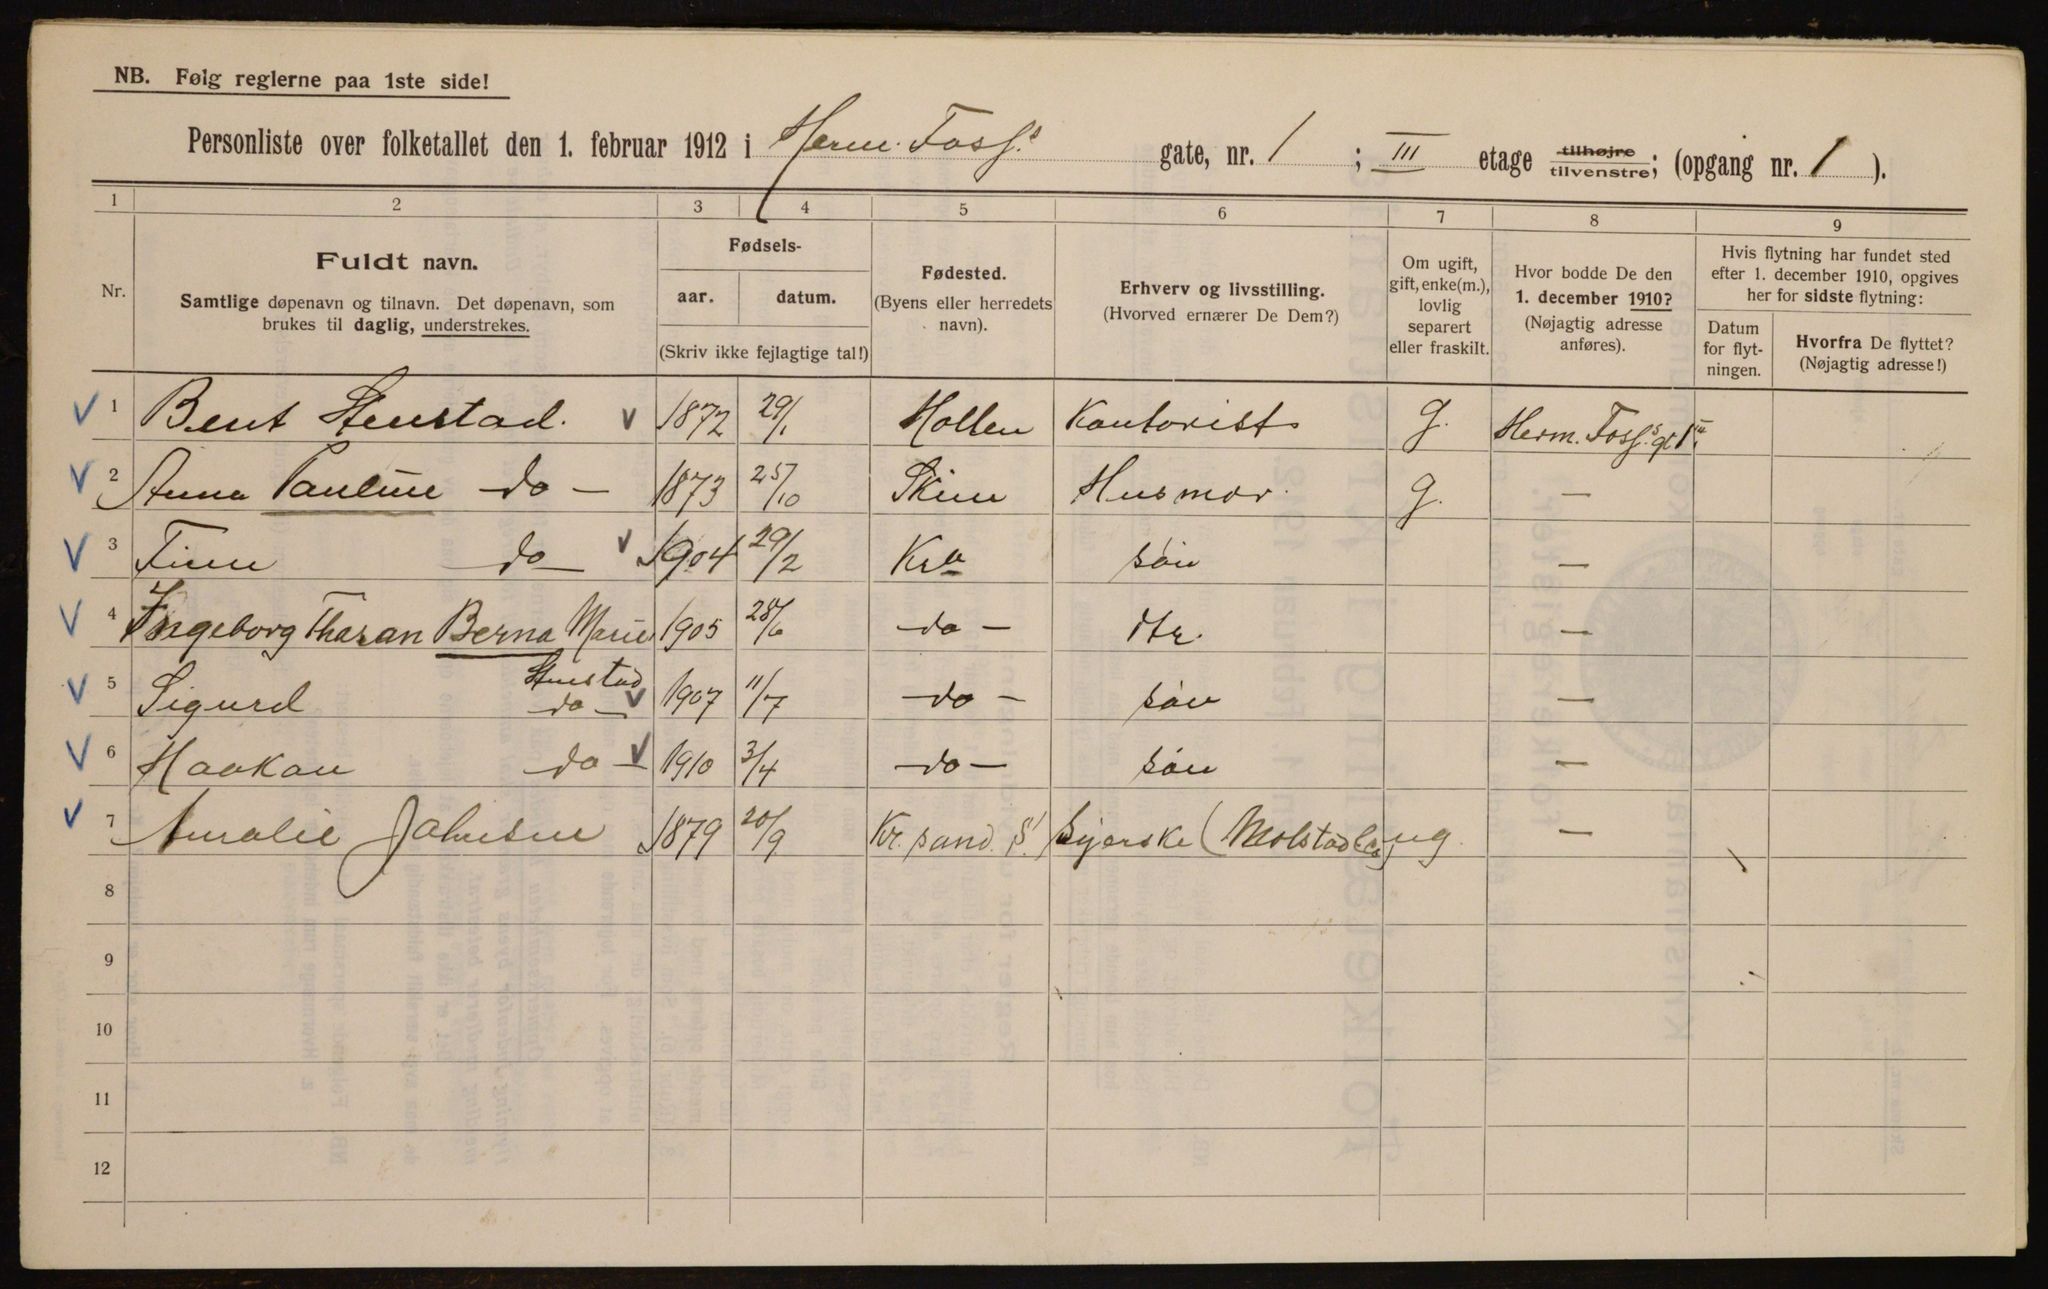 NB. Følg reglerne paa 1ste side!
Personliste over folketallet den 1. februar 1912 i Herm. Foss's gate, nr. 1 ; III etage tilhøjre tilvenstre; (opgang nr. 1 ).
1 2 3 4 5 6 7 8 9
Nr.
Fuldt navn.
Samtlige døpenavn og tilnavn. Det døpenavn, som
brukes til daglig, understrekes.
Fødsels-
aar. datum.
(Skriv ikke fejlagtige tal!)
Fødested.
(Byens eller herredets
navn).
Erhverv og livsstilling.
(Hvorved ernærer De Dem?)
Om ugift,
gift, enke(m.),
lovlig
separert
eller fraskilt.
Hvor bodde De den
1. december 1910?
(Nøjagtig adresse
anføres).
Hvis flytning har fundet sted
efter 1. december 1910, opgives
her for sidste flytning:
Datum
for flyt-
ningen.
Hvorfra De flyttet?
(Nøjagtig adresse!)
1 Bent Stenstad. 1872 29/1 Hollen Kontorist g. Herm. Foss's gt 1 III
2 Anna Pauline do - 1873 25/10 Skien Husmor. g. -
3 Finn do - 1904 29/2 Kra søn -
4 Ingeborg Tharan Berna Marie Stenstad 1905 28/6 - do - dtr. -
5 Sigurd do - 1907 11/7 - do - søn -
6 Haakon do - 1910 3/4 - do - søn -
7 Amalie Johnsen 1879 20/9 Kr. sand. S. syerske (Molstad & Co) ug. -
8
9
10
11
12